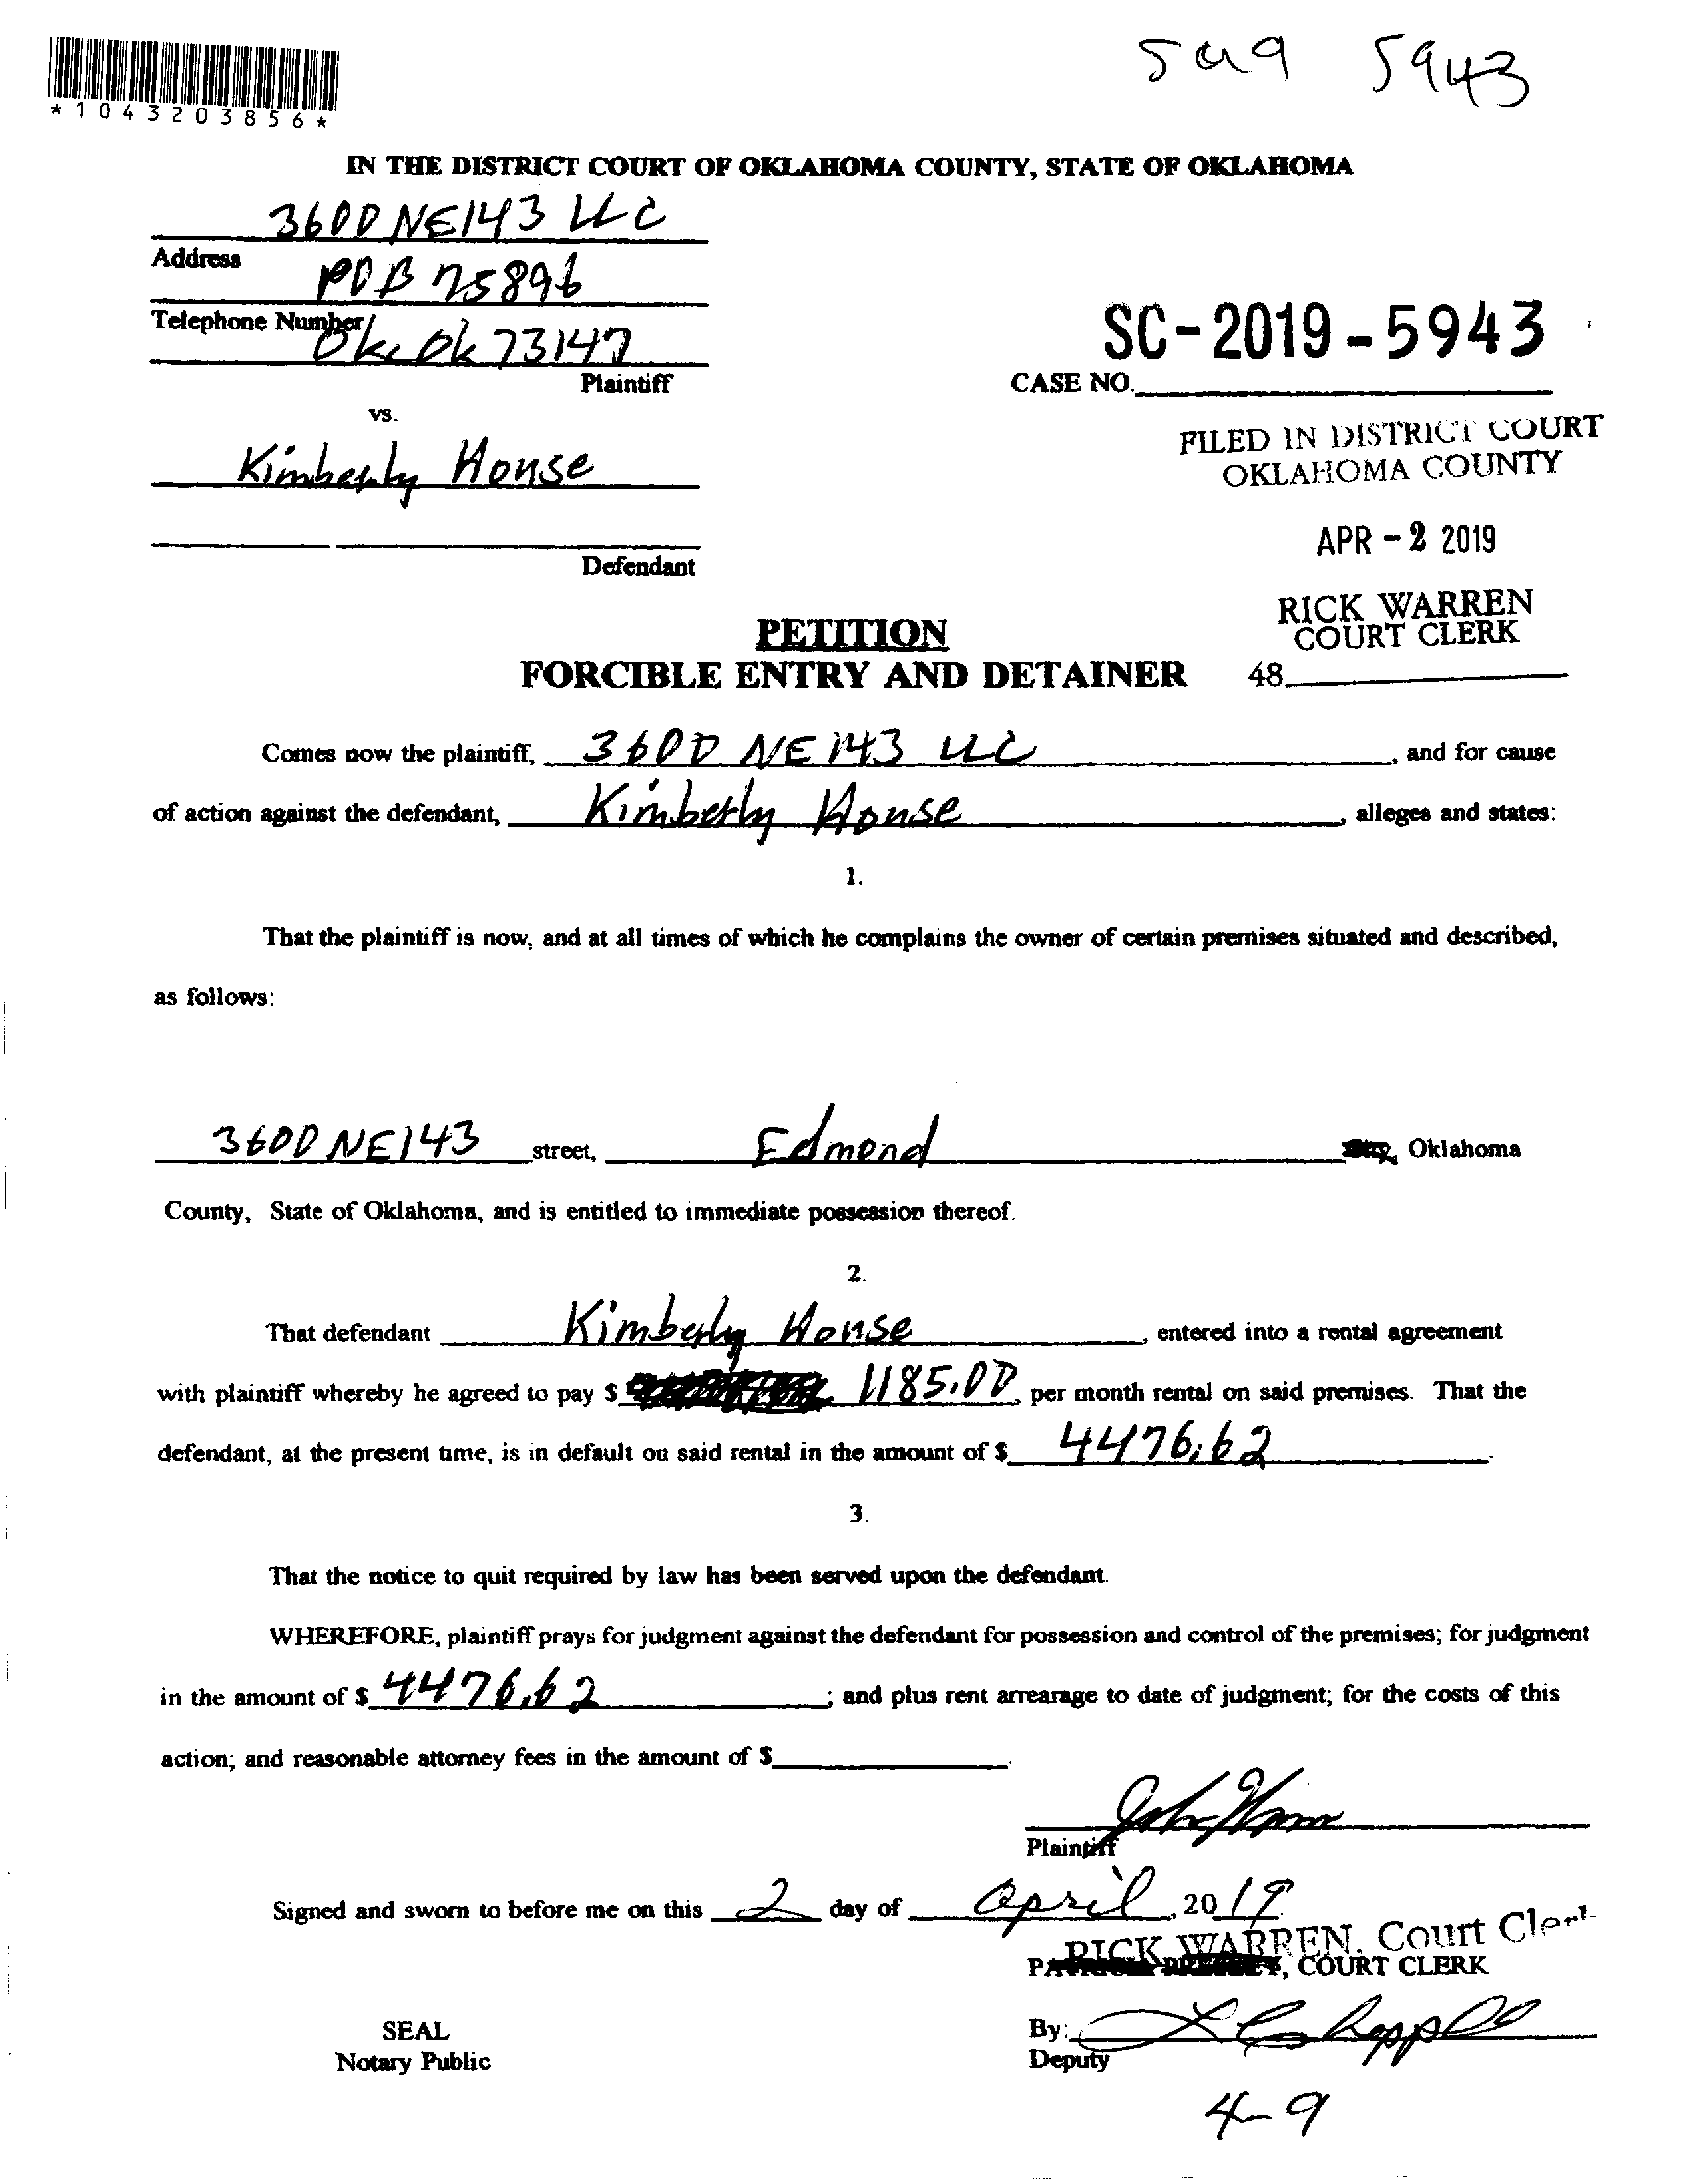 5943
*1043203856*
IN THE DISTRICT COURT OF OKLAHOMA COUNTY, STATE OF OKLAHOMA
3600 NE 143 LLC
Address
POB 75896
Telephone Number
Okc Ok 73147
Plaintiff
SC-2019-5943
CASE NO.
vs.
Kimberly House
FILED IN DISTRICT COURT
OKLAHOMA COUNTY
APR -2 2019
Defendant
RICK WARREN
COURT CLERK
48
PETITION
FORCIBLE ENTRY AND DETAINER
Comes now the plaintiff, 3600 NE 143 LLC, and for cause
of action against the defendant, Kimberly House, alleges and states:
1.
That the plaintiff is now, and at all times of which he complains the owner of certain premises situated and described,
as follows:
3600 NE 143 street, Edmond Oklahoma
County, State of Oklahoma, and is entitled to immediate possession thereof.
2.
That defendant Kimberly House, entered into a rental agreement
with plaintiff whereby he agreed to pay $ 1185.00, per month rental on said premises. That the
defendant, at the present time, is in default on said rental in the amount of $ 4476.62.
3.
That the notice to quit required by law has been served upon the defendant.
WHEREFORE, plaintiff prays for judgment against the defendant for possession and control of the premises; for judgment
in the amount of $ 4476.62; and plus rent arrearage to date of judgment; for the costs of this
action; and reasonable attorney fees in the amount of $.
Plaintiff
Signed and sworn to before me on this 2 day of April, 2019.
RICK WARREN, Court Clerk
COURT CLERK
SEAL
By:
Notary Public
Deputy
4-9